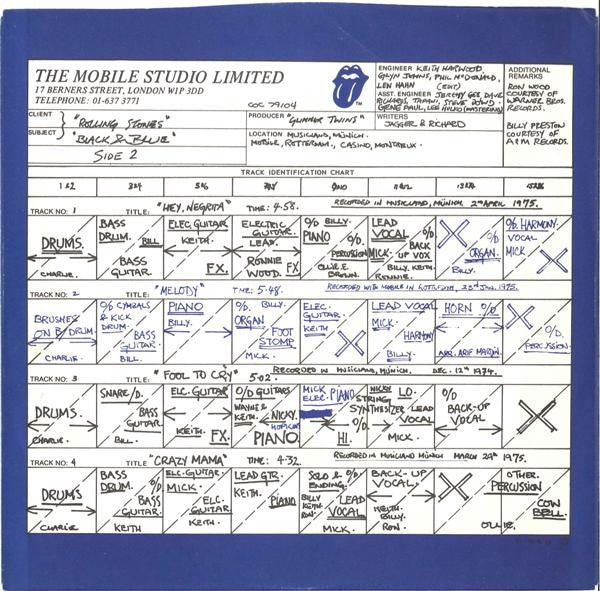 THE MOBILE STUDIO LIMITED
17 BERNERS STREET, LONDON W1P 3DD
TELEPHONE: 01-637 3771
COC 79104
TM
ENGINEER KEITH HARWOOD
GLYN JOHNS, PHIL McDONALD,
LEW HAHN (ENT)
ASST. ENGINEER JEREMY GEE, DAVE
RICHARDS, TAPANI, STEVE DOWD
GENE PAUL, LEE HULKO (MASTERING)
ADDITIONAL
REMARKS
RON WOOD
COURTESY OF
WARNER BROS.
RECORDS.
BILLY PRESTON
COURTESY OF
A&M RECORDS.
CLIENT "ROLLING STONES"
SUBJECT "BLACK & BLUE"
SIDE 2
PRODUCER "GLIMMER TWINS"
WRITERS
JAGGER & RICHARD
LOCATION MUSICLAND, MÜNICH.
MOBILE, ROTTERDAM., CASINO, MONTREUX.
TRACK IDENTIFICATION CHART
1&2 3&4 5&6 7&8 9&10 11&12 13&14 15&16
TRACK NO: 1 TITLE: "HEY, NEGRITA" TIME: 4-58. RECORDED IN MUSICLAND, MÜNICH 2ND APRIL 1975.
DRUMS.
CHARLIE.
BASS
DRUM.
BILL
BASS
GUITAR.
ELEC. GUITAR
KEITH.
FX.
ELECTRIC
GUITAR.
LEAD.
RONNIE
WOOD.
FX
O/D BILLY.
PIANO
O/D.
PERCUSSION
OLLIE E.
BROWN.
LEAD
VOCAL
MICK.
O/D.
BACK
UP VOX
BILLY. KEITH.
RONNIE.
O/D.
ORGAN.
BILLY.
O/D. HARMONY.
VOCAL
MICK.
TRACK NO: 2 TITLE: "MELODY" TIME: 5-48. RECORDED WITH MOBILE IN ROTTERDAM, 23RD JAN. 1975.
BRUSHES
ON B/DRUM.
CHARLIE.
O/D CYMBALS
& KICK
DRUM.
BASS
GUITAR.
BILL.
PIANO
BILLY.
O/D. BILLY.
ORGAN
FOOT
STOMP
MICK.
ELEC.
GUITAR
KEITH
LEAD VOCAL
MICK.
HARMONY
BILLY.
HORN O/D
ARR. ARIF MARDIN.
O/D.
PERCUSSION.
TRACK NO: 3 TITLE: "FOOL TO CRY" 5-02. RECORDED IN MUSICLAND, MÜNICH. DEC. 12TH 1974.
DRUMS.
CHARLIE.
SNARE/D.
BASS
GUITAR.
BILL.
ELC. GUITAR
KEITH.
FX.
O/D GUITARS
WAYNE &
KEITH.
NICKY.
HOPKINS
PIANO.
MICK
ELEC. PIANO
HI.
NICKY LO.
STRING
SYNTHESIZER
LEAD
VOCAL
MICK.
O/D
BACK-UP
VOCAL
TRACK NO: 4 TITLE: "CRAZY MAMA" TIME: 4-32. RECORDED IN MUSICLAND MÜNICH MARCH 29TH 1975.
DRUMS
CHARLIE
BASS
DRUM.
O/D
BASS
GUITAR.
KEITH
ELC. GUITAR
MICK.
ELC.
GUITAR
KEITH.
LEAD GTR.
KEITH.
PIANO
SOLO & O/D
ENDING.
BILLY
KEITH
RON.
LEAD
VOCAL
MICK.
BACK-UP
VOCAL.
KEITH.
BILLY.
RON.
OLLIE.
OTHER.
PERCUSSION
COW
BELL.